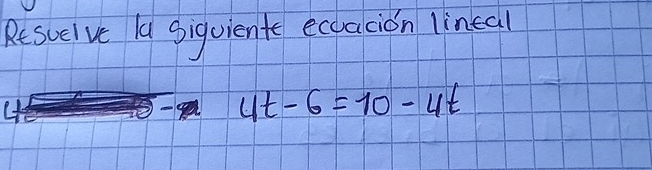 Resuelve la siguiente ecuación lineal
4t - 6 = 10 - 4t